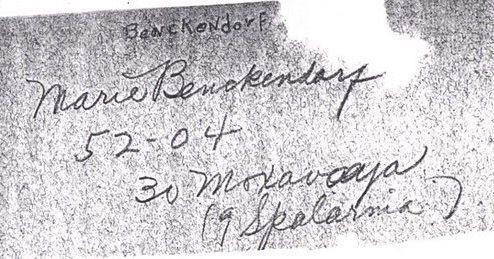 Benckendorf
Marie Benckendorf
52-04
30 Moxavaaja
(9 Spalarnia)